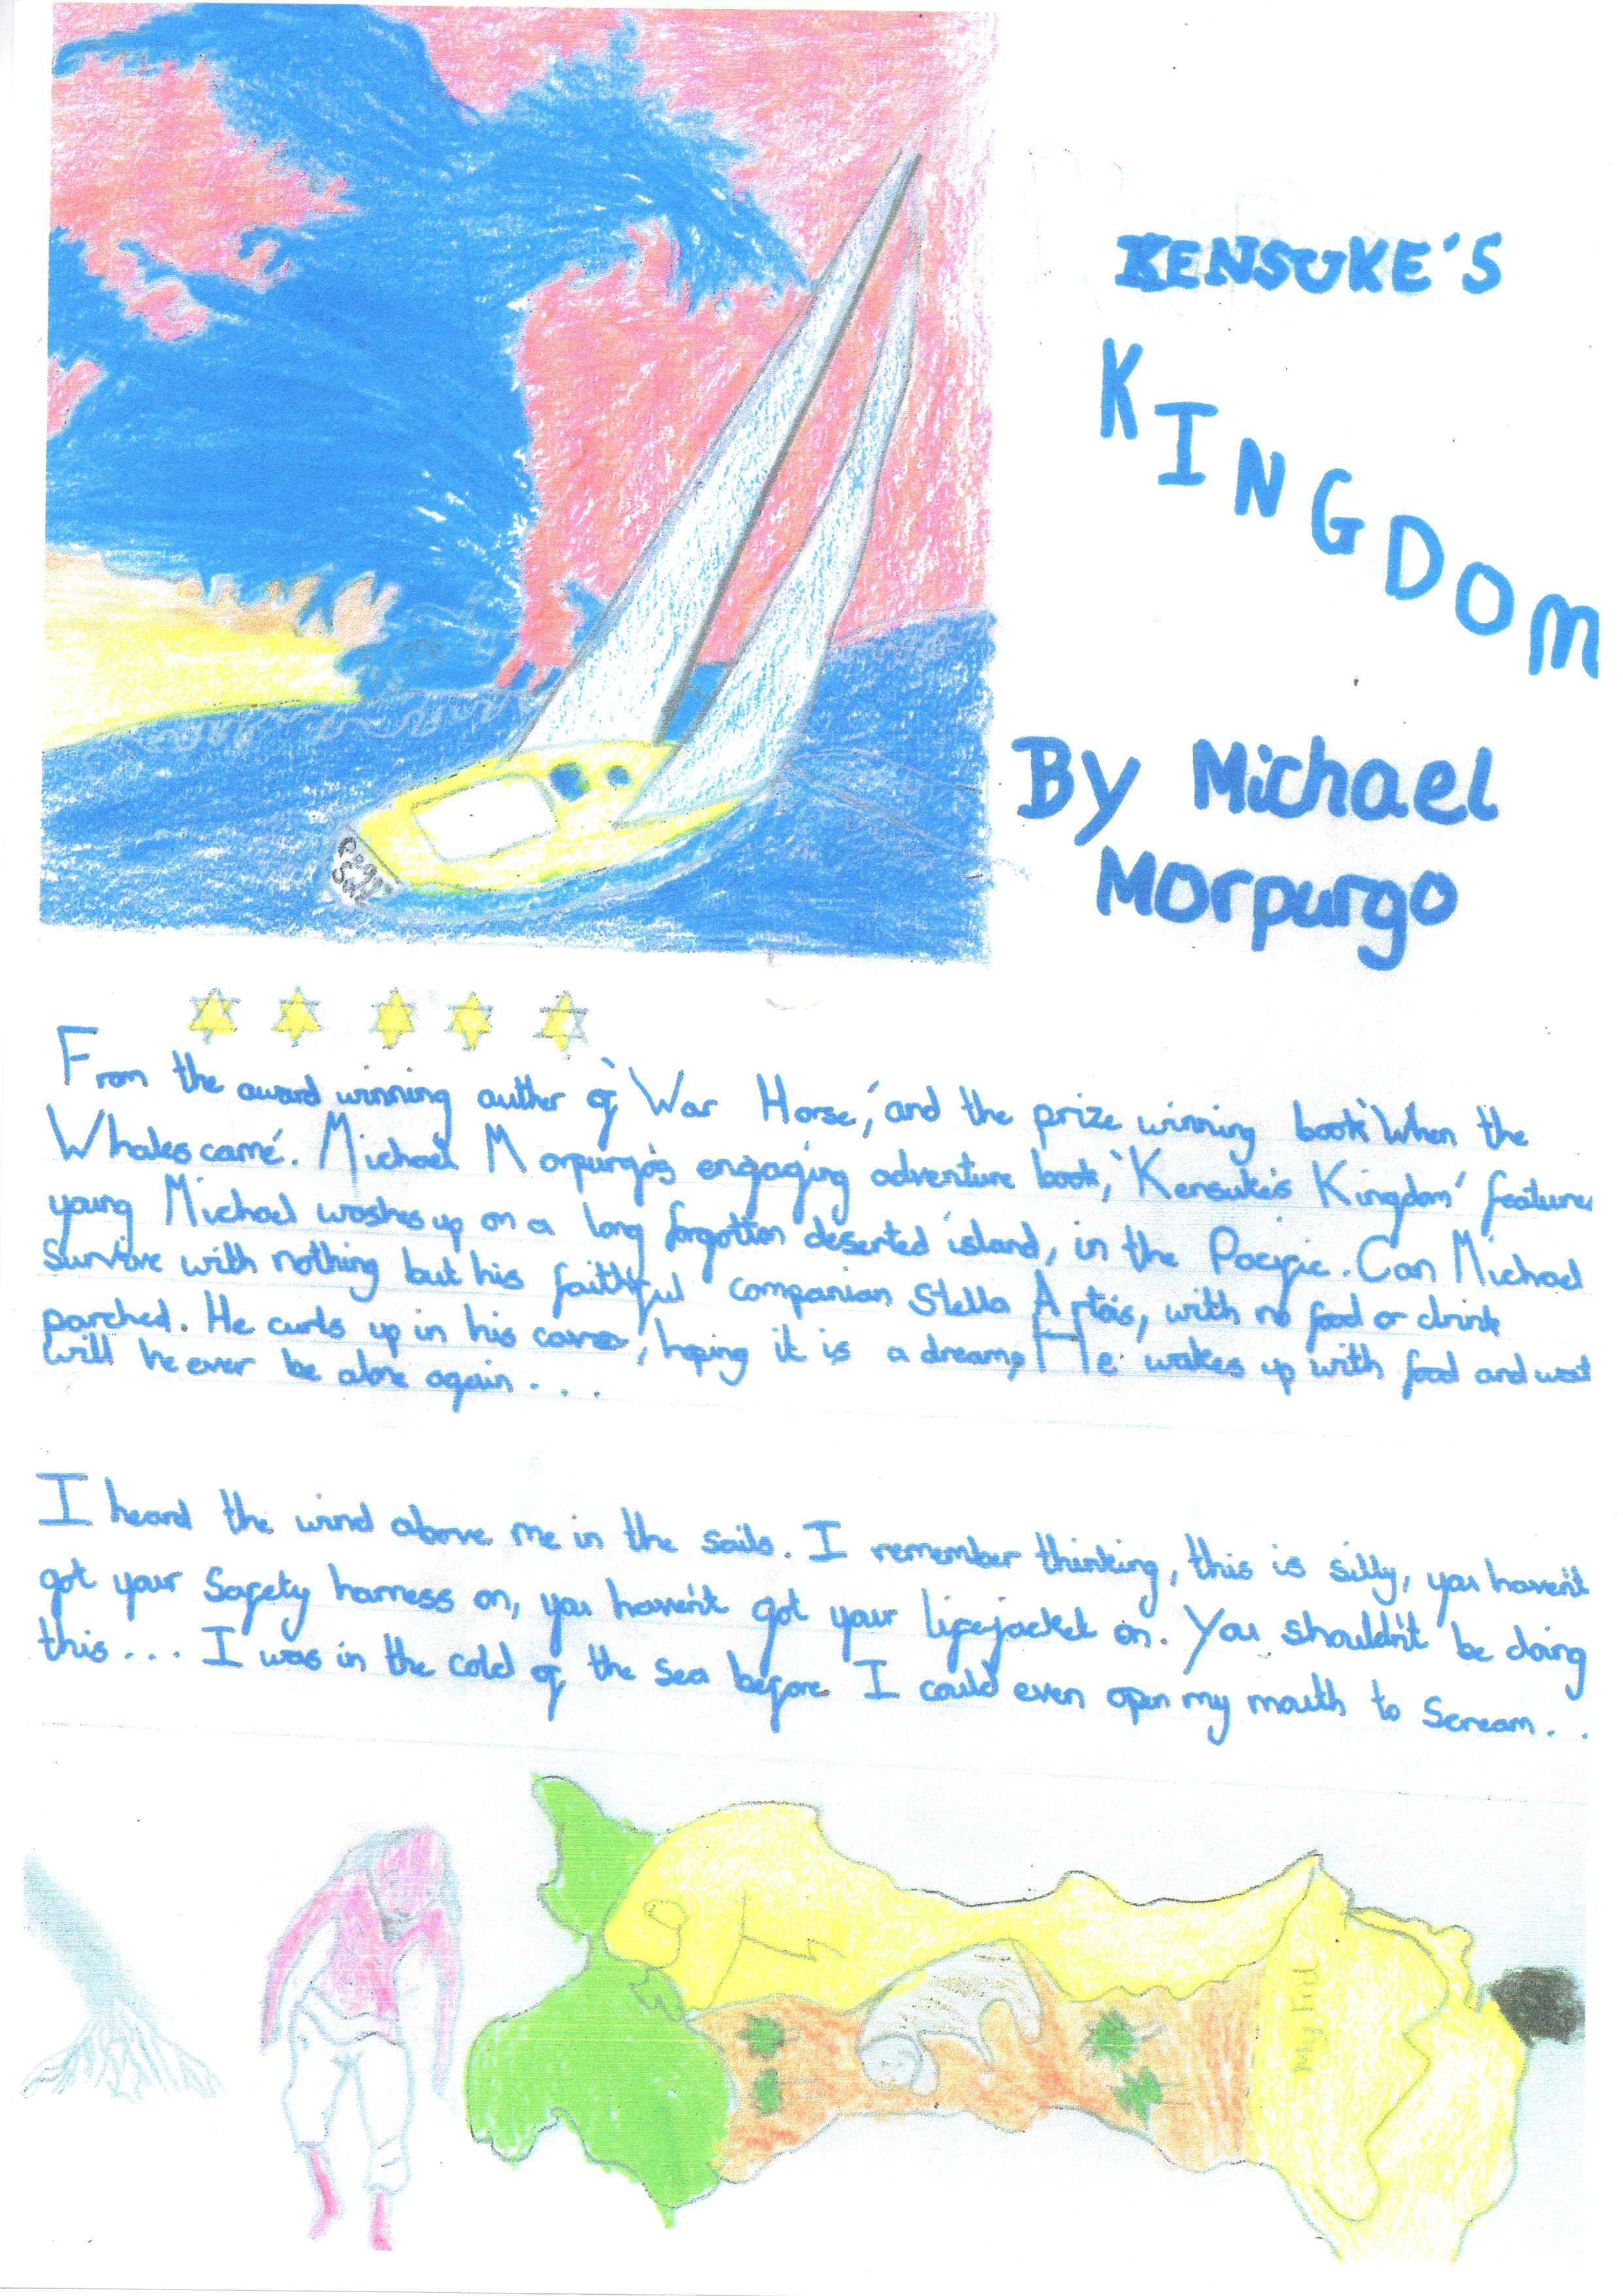 KENSUKE'S
KINGDOM
By Michael
Morpurgo
From the award winning auther of 'War Horse', and the prize winning book 'When the
Whales came'. Michael Morpurgo's engaging adventure book, 'Kensuke's Kingdom' features
young Michael washes up on a long forgotton deserted island, in the Pacific. Can Michael
Survive with nothing but his faithful companian Stella Artois, with no food or drink
parched. He curls up in his cave, hoping it is a dream, He wakes up with food and wat
will he ever be alone again...
I heard the wind above me in the sails. I remember thinking, this is silly, you haven't
got your Safety harness on, you haven't got your lifejacket on. You shouldn't be doing
this... I was in the cold of the sea before I could even open my mouth to Scream..
My hill